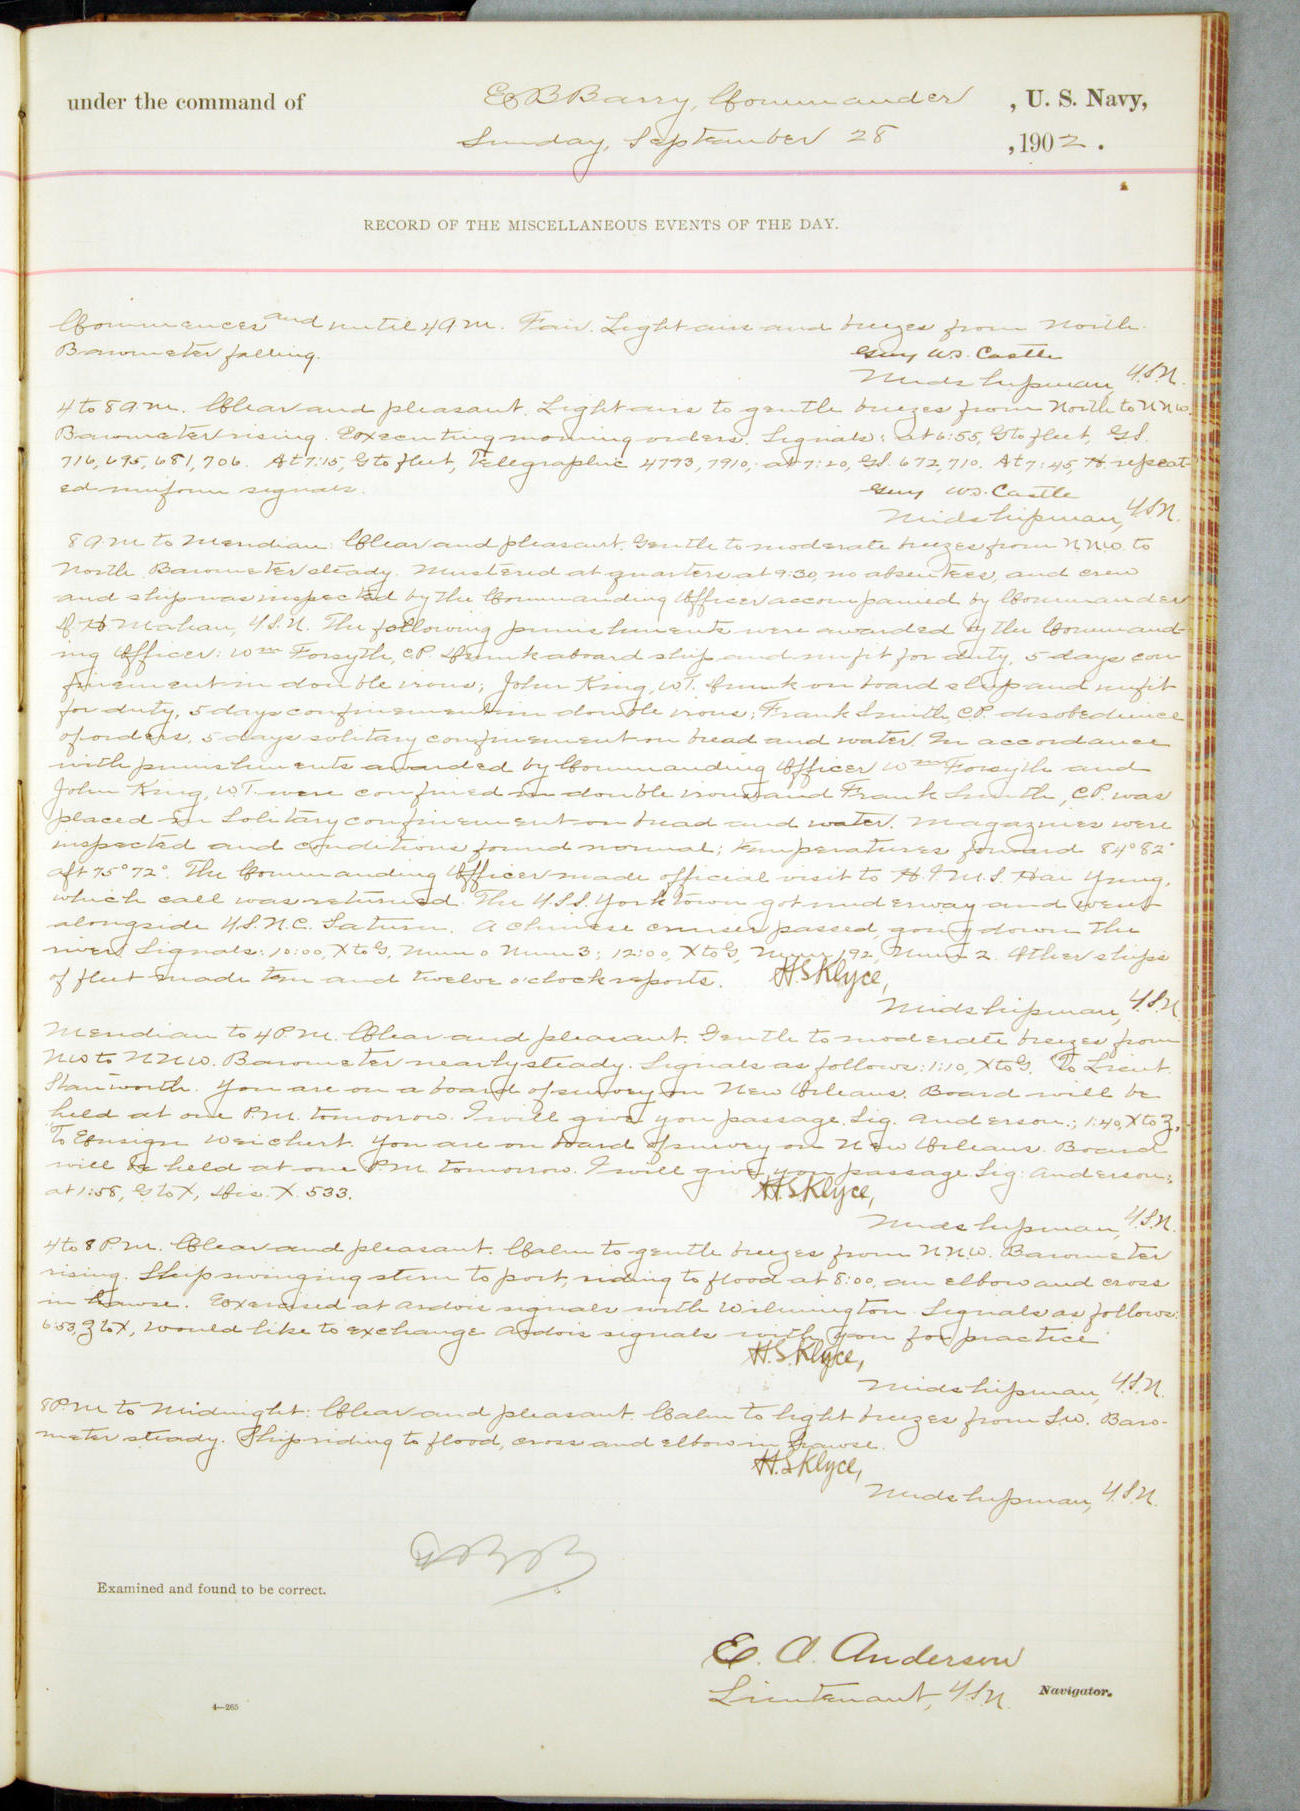 under the command of E B Barry, Commander , U. S. Navy,
Sunday, September 28 , 1902.
RECORD OF THE MISCELLANEOUS EVENTS OF THE DAY.
Commences and until 4 a m. Fair. Light airs and breezes from North.
Barometer falling.
Guy W.S. Castle
Midshipman, U.S.N.
4 to 8 a.m. Clear and pleasant. Light airs to gentle breezes from North to N N W.
Barometer rising. Executing morning orders. Signals: at 6:55, G to fleet, G.S.
716, 695, 681, 706. At 7:15, G to fleet, Telegraphic 4793, 7910; at 7:20, G.S. 672, 710. At 7:45, H repeat-
ed uniform signals.
Guy W.S. Castle
Midshipman, U.S.N.
8 a m to Meridian: Clear and pleasant. Gentle to moderate breezes from N N W to
North. Barometer steady. Mustered at quarters at 9:30, no absentees, and crew
and ship was inspected by the Commanding Officer accompanied by Commander
D. H. Mahan, U.S.N. The following punishments were awarded by the Command-
ing Officer: Wm Forsyth, C.P. drunk aboard ship and unfit for duty, 5 days con-
finement in double irons; John King, W.T. drunk on board ship and unfit
for duty, 5 days confinement in double irons; Frank Smith, C.P. disobedience
of orders, 5 days solitary confinement on bread and water. In accordance
with punishments awarded by Commanding Officer Wm Forsyth and
John King, W.T. were confined in double irons and Frank Smith, C.P. was
placed in solitary confinement on bread and water. Magazines were
inspected and conditions found normal; temperatures forward 84° 82°
aft 75° 72°. The Commanding Officer made official visit to H.I.M.S. Hai Yung,
which call was returned. The U.S.S. Yorktown got underway and went
alongside U.S.N.C. Saturn. A chinese cruiser passed, going down the
river. Signals: 10:00, X to G, Num 0 Num 3; 12:00, X to G, Num 192, Num 2. Other ships
of fleet made ten and twelve o'clock reports.
H.S. Klyce,
Midshipman, U.S.N.
Meridian to 4 P.M. Clear and pleasant. Gentle to moderate breezes from
NW to N N W. Barometer nearly steady. Signals as follows: 1:10, X to G. "To Lieut.
Stanworth. You are on a board of survey on New Orleans. Board will be
held at one P.M. tomorrow. I will give you passage. Sig. Anderson.; 1:40, X to Z,
"To Ensign Weichert. You are on board of survey on New Orleans. Board
will be held at one P.M. tomorrow. I will give you passage. Sig: Anderson;
at 1:58, G to X, Dis. X. 533.
H.S. Klyce,
Midshipman, U.S.N.
4 to 8 P.M. Clear and pleasant. Calm to gentle breezes from N.N.W. Barometer
rising. Ship swinging stern to port, riding to flood at 8:00, an elbow and cross
in hawse. Exercised at ardois signals with Wilmington. Signals as follows:
6:53, Z to X, Would like to exchange ardois signals with you for practice
H.S. Klyce,
Midshipman, U.S.N.
8 P.M to Midnight: Clear and pleasant. Calm to light breezes from S.W. Baro-
meter steady. Ship riding to flood, cross and elbow in hawse.
H.S. Klyce,
Midshipman, U.S.N.
EBB
Examined and found to be correct.
E. A. Anderson
Lieutenant, U.S.N. Navigator.
4—265